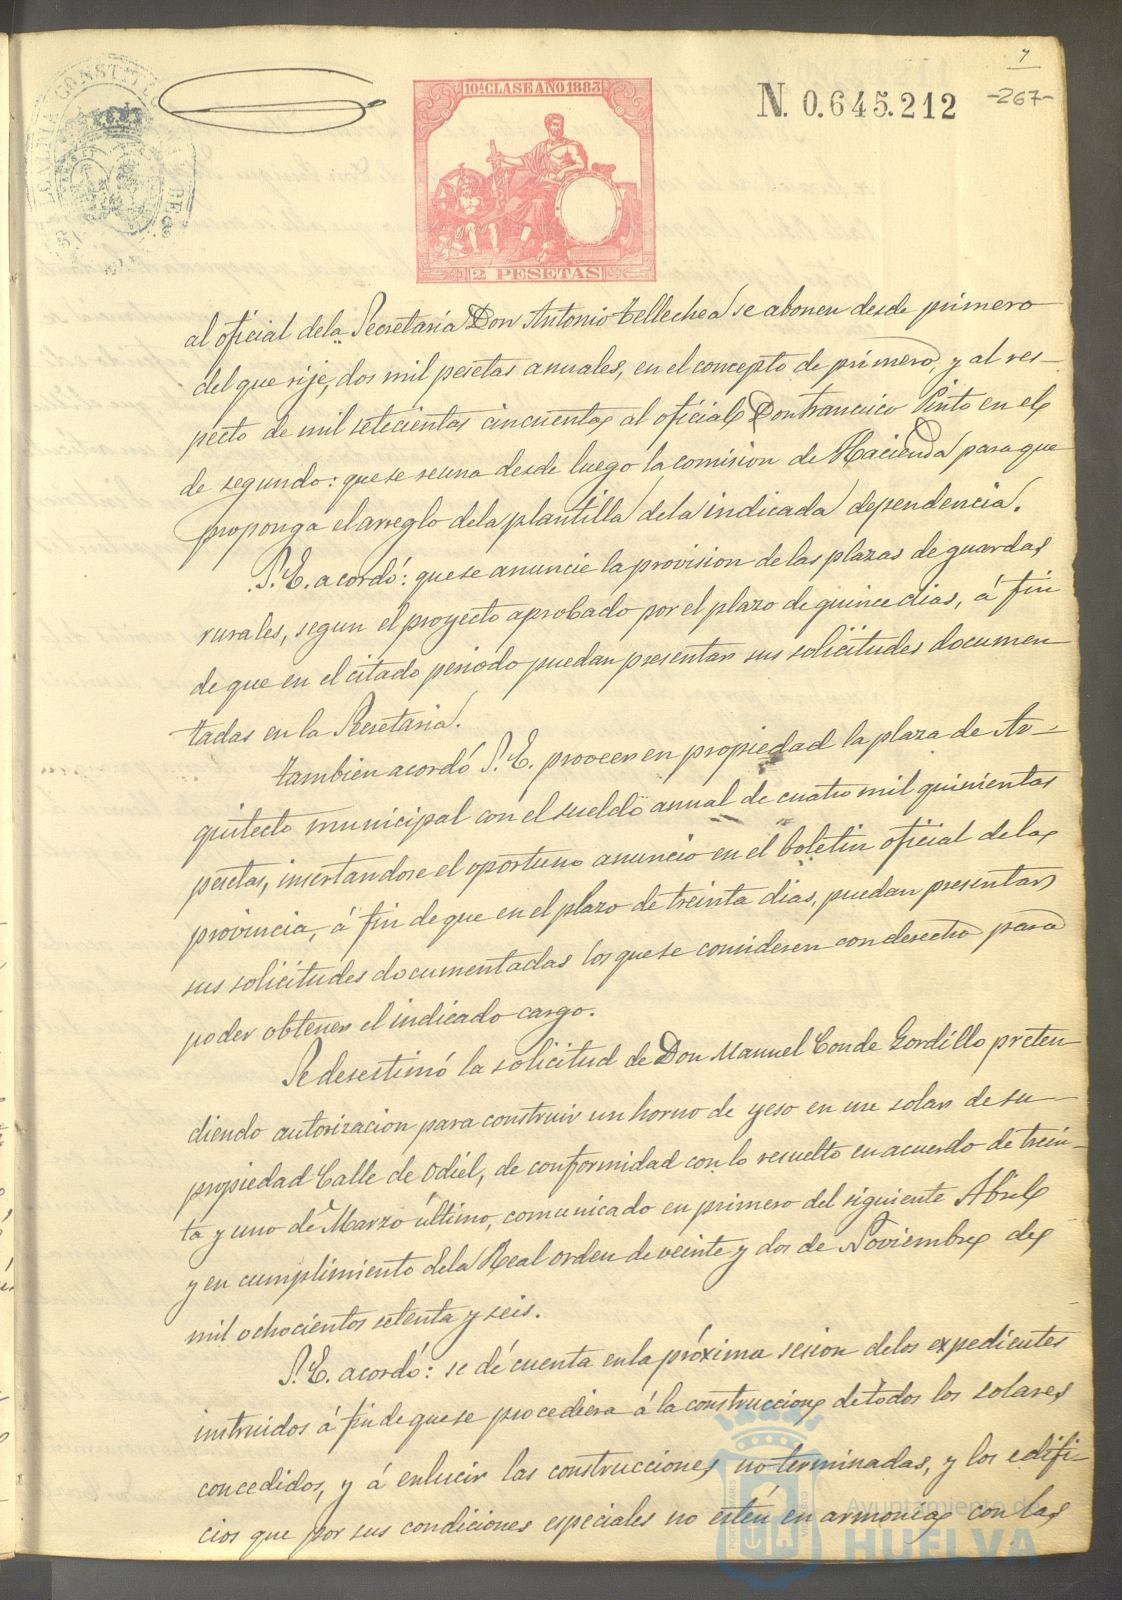 7
-267-
10ª CLASE AÑO 1883
N. 0.645.212
2 PESETAS
al oficial dela Secretaría Don Antonio Tellechea se abonen desde primero
del que rije, dos mil pesetas anuales, en el concepto de primero, y al res-
pecto de mil setecientas cincuenta, al oficial Don Francisco Pinto en el
de segundo: que se reuna desde luego la comision de Hacienda para que
proponga el arreglo dela plantilla dela indicada dependencia.
S. E. acordó: que se anuncie la provision de las plazas de guardas
rurales, segun el proyecto aprobado por el plazo de quince dias, á fin
de que en el citado periodo puedan presentar sus solicitudes documen
tadas en la Secretaria.
Tambien acordó S. E. proveer en propiedad la plaza de Ar-
quitecto municipal con el sueldo anual de cuatro mil quinientas
pesetas, insertandose el oportuno anuncio en el boletin oficial de la
provincia, á fin de que en el plazo de treinta dias, puedan presentar
sus solicitudes documentadas los que se consideren con derecho para
poder obtener el indicado cargo.
Se desestimó la solicitud de Don Manuel Conde Gordillo preten
diendo autorizacion para construir un horno de yeso en un solar de su
propiedad Calle de Odiel, de conformidad con lo resuelto en acuerdo de trein-
ta y uno de Marzo último, comunicado en primero del siguiente Abril
y en cumplimiento dela Real orden de veinte y dos de Noviembre de
mil ochocientos setenta y seis.
S. E. acordó: se dé cuenta en la próxima sesion delos expedientes
instruidos á fin de que se procediera á la construccion de todos los solares
concedidos, y á enlucir las construcciones no terminadas, y los edifi-
cios que por sus condiciones especiales no estén en armonia con las
Ayuntamiento de
HUELVA